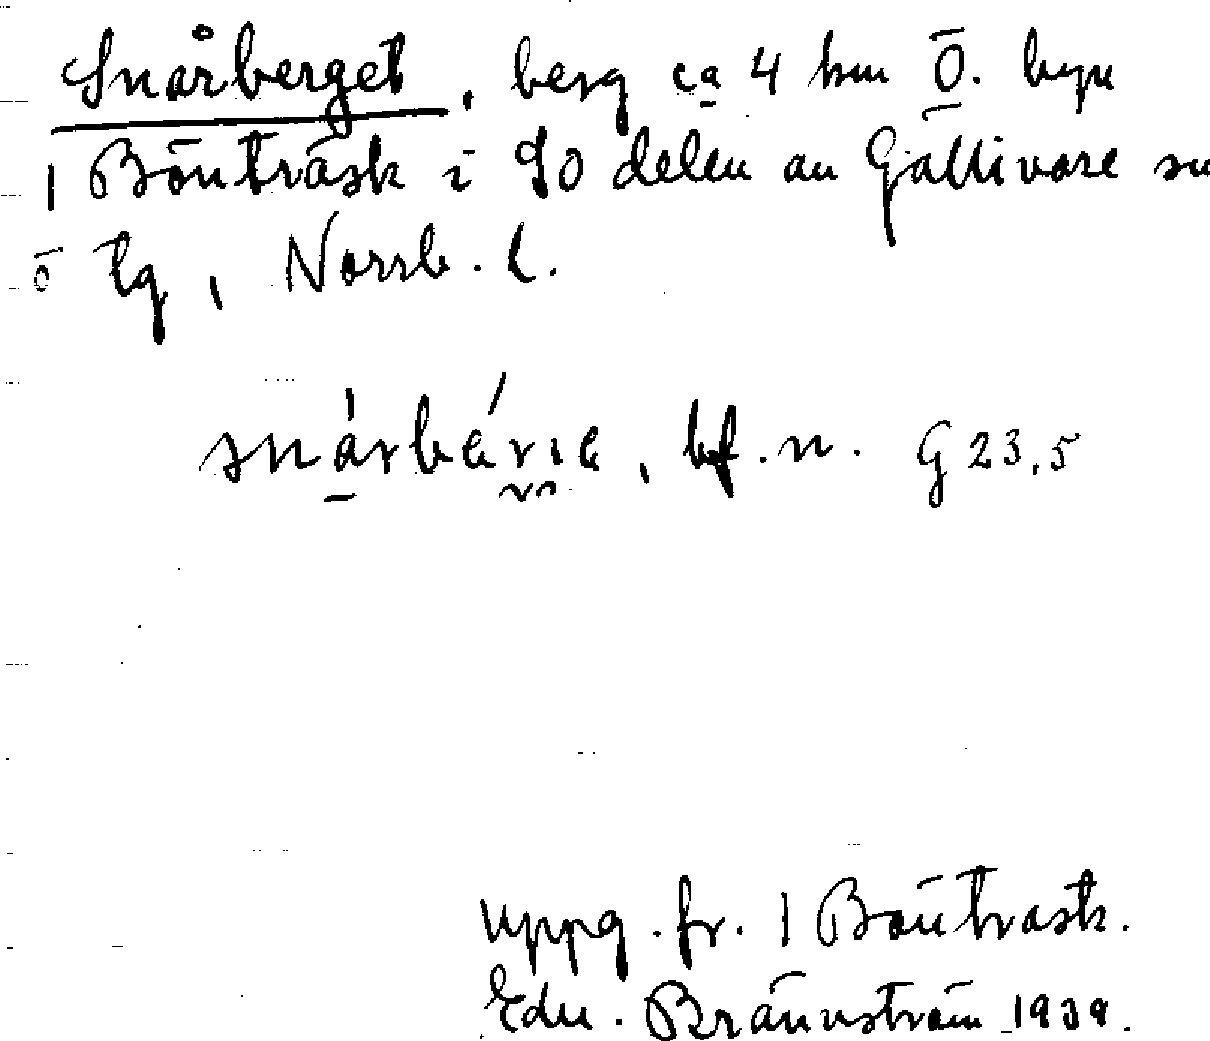 Snårberget, berg ca 4 km Ö. byn
| Bönträsk i SO delen av Gällivare sn
o lg, Norrb. l.
snárbǽrıe, bf. n. G 23,5
uppg. fr. | Bönträsk.
Edv. Brännström 1939.